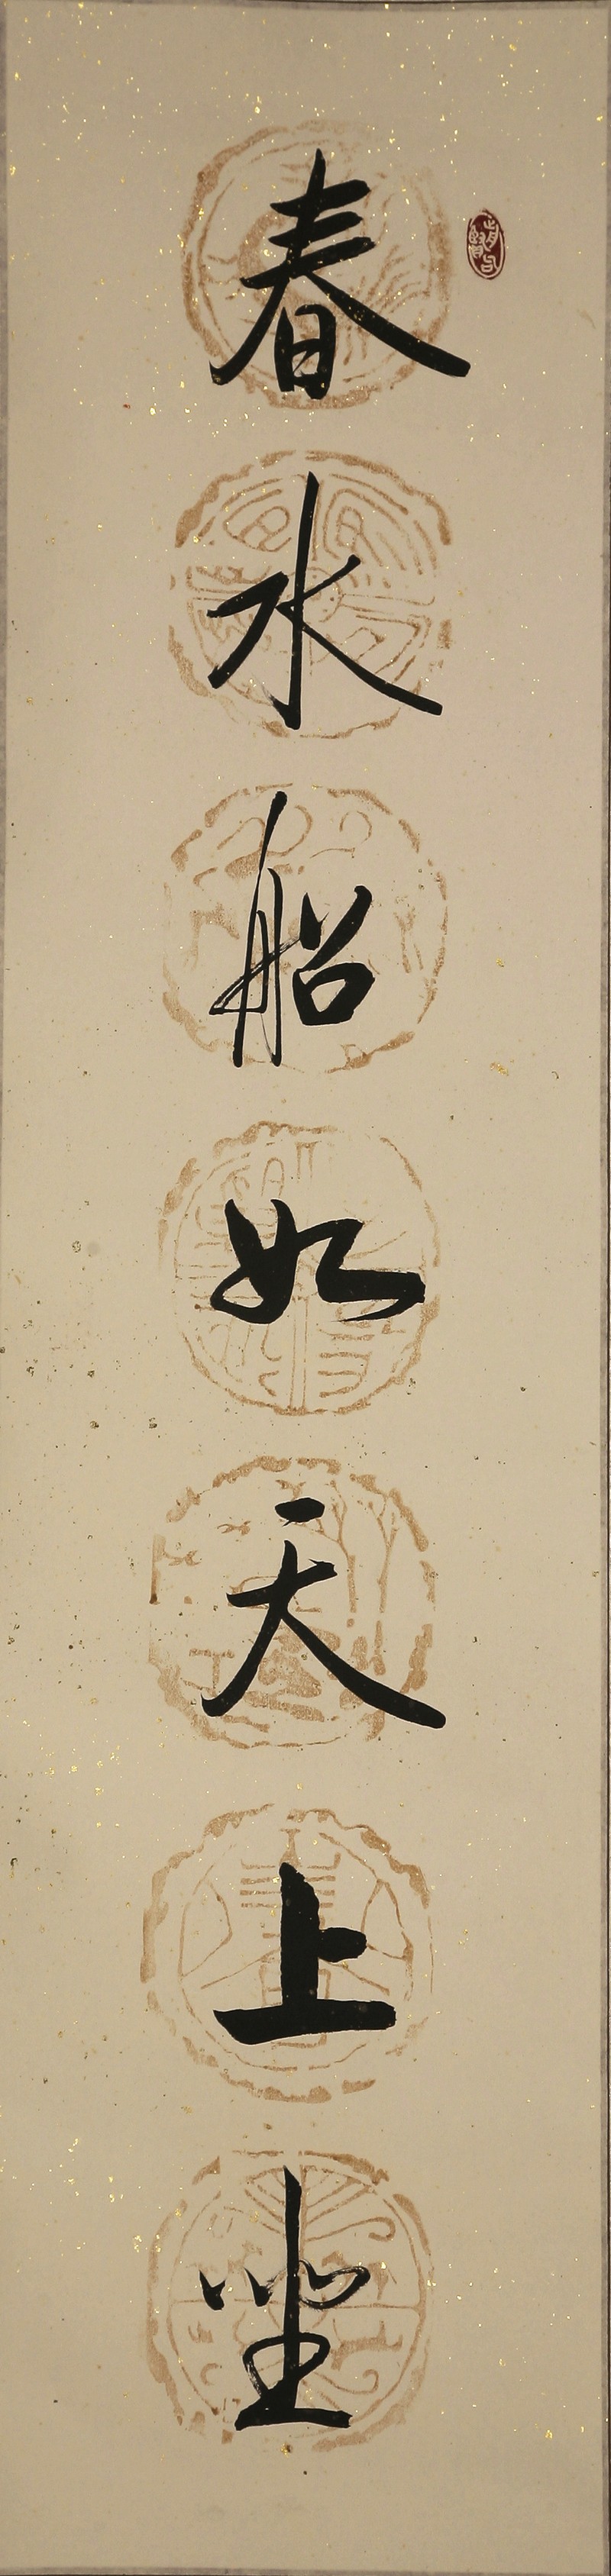 春水船如天上坐